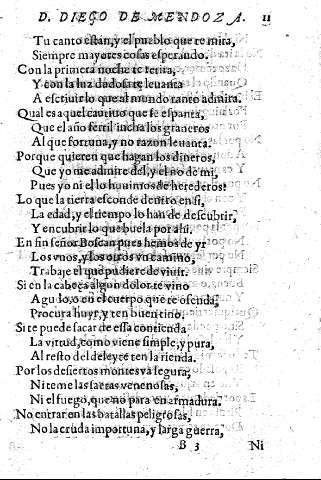 D. DIEGO DE MENDOZA. 11
Tu canto estàn, y el pueblo que te mira,
Siempre mayores cosas esperando.
Con la primera noche te retira,
Y con la luz dudosa te leuanta
A escriuir lo que al mundo tanto admira.
Qual es aquel cautiuo que se espanta,
Que el año fertil incha los graneros
Al que fortuna, y no razon leuanta.
Porque quieren que hagan los dineros,
Que yo me admire del, y el no de mi,
Pues yo ni el lo huuimos de herederos?
Lo que la tierra esconde dentro en si,
La edad, y el tiempo lo han de descubrir,
Y encubrir lo que buela por ahi.
En fin señor Boscan pues hemos de yr
Los vnos, y los otros vn camino,
Trabaje el que pudiere de viuir.
Si en la cabeça algun dolor te vino
Agudo, o en el cuerpo que te ofenda,
Procura huyr, y ten buen tino.
Si te puede sacar de essa contienda
La virtud, como viene simple, y pura,
Al resto del deleyte ten la rienda.
Por los desiertos montes va segura,
Ni teme las saetas venenosas,
Ni el fuego, que no para en armadura.
No entrar en las batallas peligrosas,
No la cruda importuna, y larga guerra,
B 3 Ni